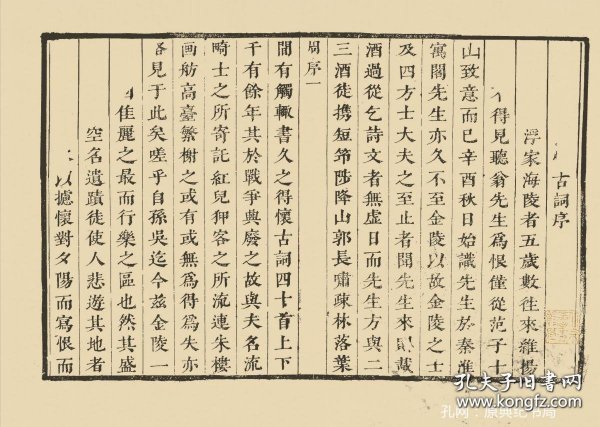 古詞序
浮家海陵者五歲數往來維揚
得見聽翁先生爲恨僅從范子十
山致意而已辛酉秋日始識先生於秦淮
寓閣先生亦久不至金陵以故金陵之士
及四方士大夫之至止者聞先生來載
酒過從乞詩文者無虛日而先生方與二
三酒徒携短笻陟降山郭長嘯疎林落葉
周序一
間有觸輒書久之得懷古詞四十首上下
千有餘年其於戰爭興廢之故與夫名流
畸士之所寄託紅兒狎客之所流連朱樓
画舫高臺繁榭之或有或無爲得爲失亦
畧見于此矣嗟乎自孫吳迄今兹金陵一
佳麗之最而行樂之區也然其盛
空名遺蹟徒使人悲遊其地者
以攄懷對夕陽而寫恨而
孔夫子旧书网
www.kongfz.com
孔网：原典纪书局